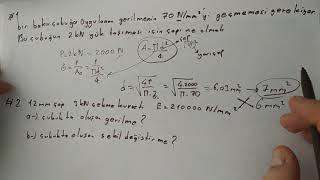 #1
bir bakır çubuğa uygulanan gerilmenin 70 N/mm²'yi geçmemesi gerekiyor
Bu çubuğun 2kN yük taşıması için çapı ne olmalı
P=2kN=2000 N
A = πd²/4
çap
σ = P/A₀ = P/(πd²/4)
d = √(4P/π.σ) = √(4.2000/π.70) = 6,03mm → 7mm
6mm
#2 12mm çap 3kN çekme kuvveti E=210000 N/mm²
a-) çubukta oluşan gerilme?
b-) çubukta oluşan şekil değiştirme?